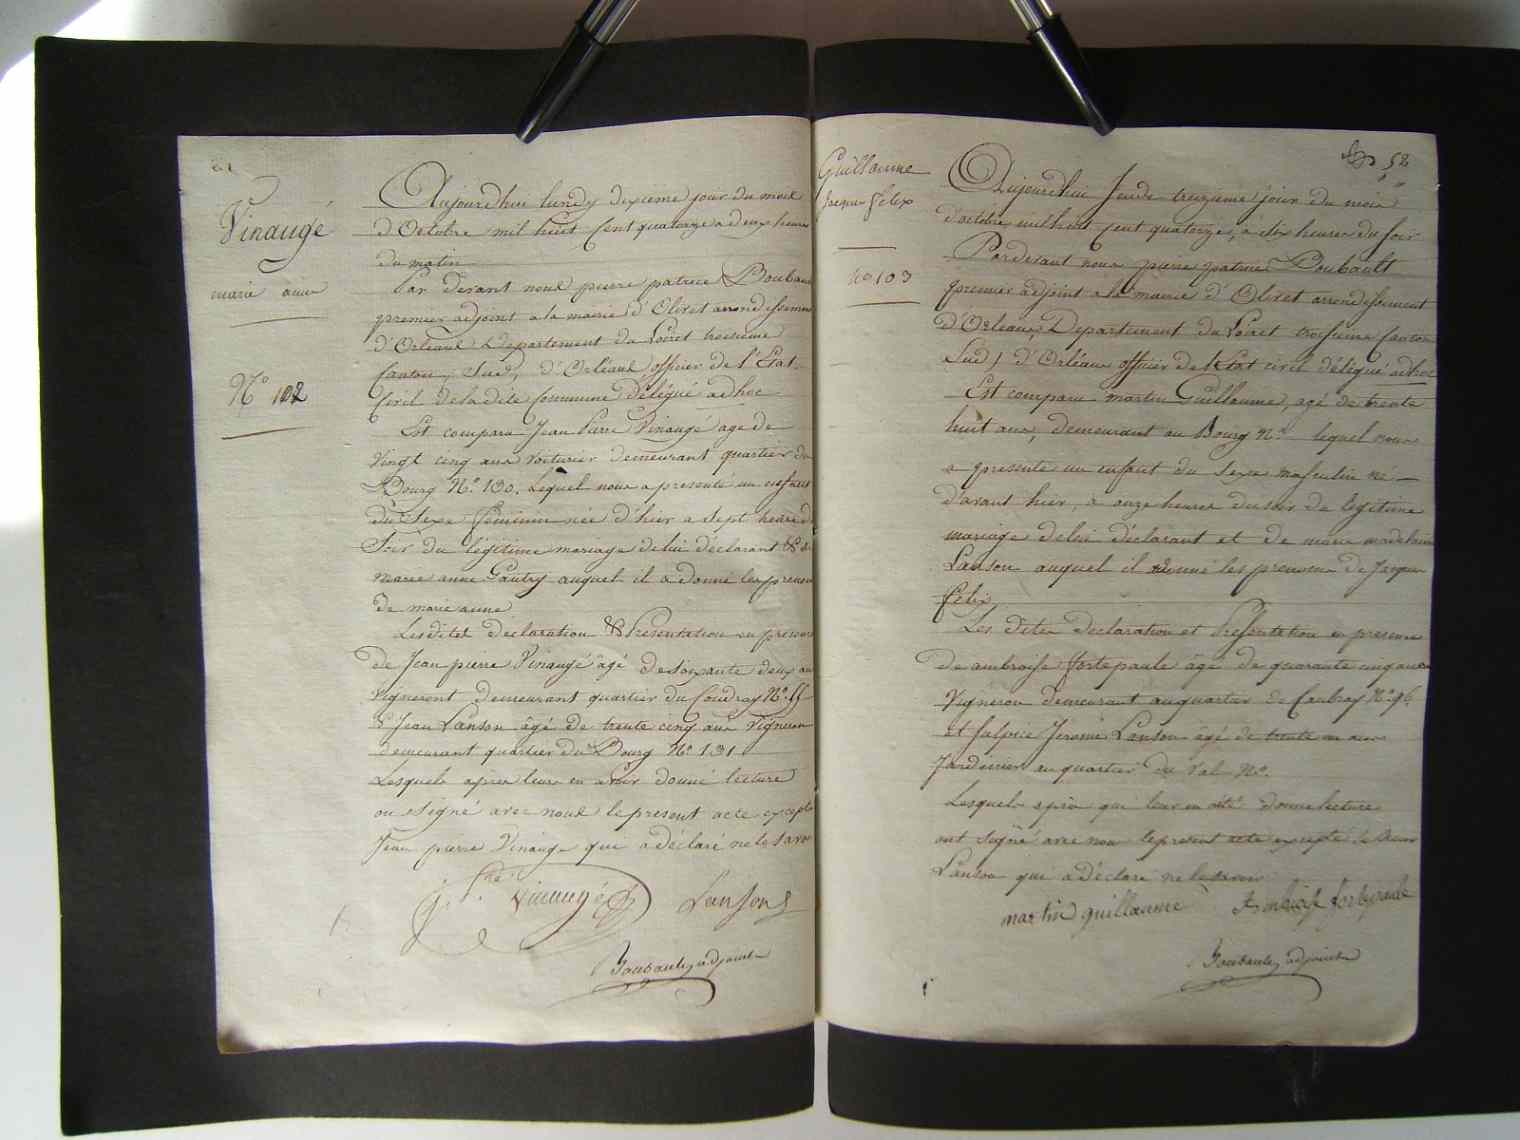 Vinaugé
marie anne
N.° 102
Aujourdhui lundy dixième jour du mois
d'Octobre mil huit Cent quatorze a deux heures
du matin
Par devant nous pierre patrice Boubau
premier adjoint a la mairie d'Olivet arrondissemen
d'Orléans Département du Loiret troisieme
Canton, Sud, d'Orléans officier de l'Etat
Civil de la dite Commune délégué adhoc
Est comparu Jean Pierre Vinaugé age de
Vingt cinq ans voiturier demeurant quartier du
Bourg N.° 130. Lequel nous a presenté un enfant
du Sexe féminin née d'hier a Sept heures d
Soir du légitime mariage de lui déclarant & de
marie anne Gautry auquel il a donné les prenom
de marie anne
Les dites declaration & Présentation en presence
de Jean pierre Vinaugé âgé de soixante deux an
Vigneront demeurant quartier du Coudray N.°
& Jean Lanson âgé de trente cinq ans Vigneron
demeurant quartier du Bourg N.° 131
Lesquels après leur en avoir donné lecture
on signé avec nous le present acte excepté
Jean pierre Vinaugé qui a déclaré ne le savo
Vinaugé Lanson
Boubault, adjoint
58
Guillaume
Jacque felix
N° 103
Aujourdhui Jeudi treizième jour du mois
d'octobre mil huit cent quatorze, à dix heures du soir
Pardevant nous pierre patrice Boubault
premier adjoint a la mairie d'Olivet arrondissement
d'Orleans, Departement du Loiret troisieme Canton
Sud) d'Orléans officier de l'Etat civil délégué adhoc
Est comparu martin Guillaume, agé de trente
huit ans, demeurant au Bourg N.° lequel nous
a presenté un enfant du sexe masculin né
d'avant hier, a onze heures du soir de legitime
mariage de lui déclarant et de marie madelaine
Lanson auquel il a donné les prenoms de Jacques
felix
Les dites declaration et Présentation en presence
de ambroise fortepaule âgé de quarante cinq ans
Vigneron demeurant au quartier de Caubray N.° 96
et Sulpice Jerome Lanson âgé de trente un ans
Jardinier au quartier du Val N.°
Lesquels après qui leur en été donné lecture
ont signé avec nous le present acte excepté le
Lanson qui a déclaré ne le savoir
martin guillaume Ambroise fortepaule
Boubault, adjoint